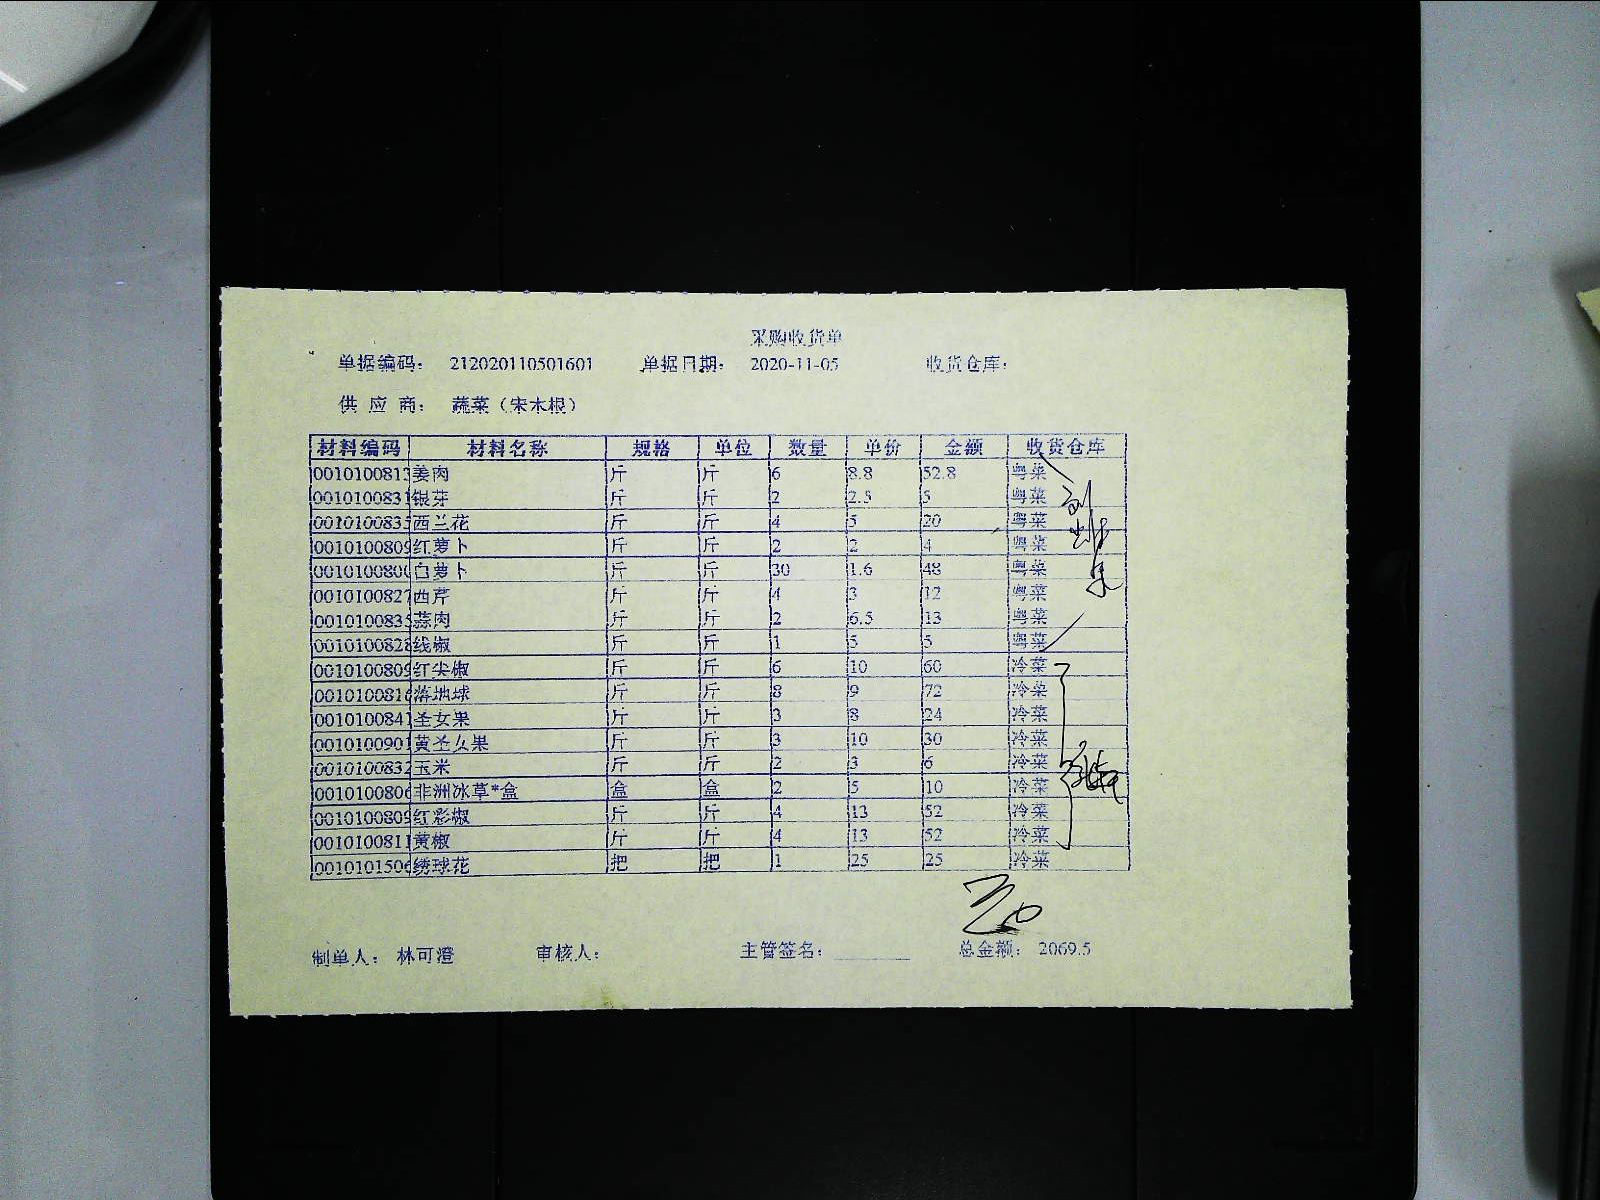 采购收货单
单据编码： 212020110501601 单据日期： 2020-11-05 收货仓库：
供 应 商： 蔬菜（宋木根）
材料编码 材料名称 规格 单位 数量 单价 金额 收货仓库
0010100813 姜肉 斤 斤 6 8.8 52.8 粤菜
0010100831 银芽 斤 斤 2 2.5 5 粤菜
0010100835 西兰花 斤 斤 4 5 20 粤菜
0010100809 红萝卜 斤 斤 2 2 4 粤菜
0010100800 白萝卜 斤 斤 30 1.6 48 粤菜
0010100827 西芹 斤 斤 4 3 12 粤菜
0010100835 蒜肉 斤 斤 2 6.5 13 粤菜
0010100828 线椒 斤 斤 1 5 5 粤菜
0010100809 红尖椒 斤 斤 6 10 60 冷菜
0010100816 落地球 斤 斤 8 9 72 冷菜
0010100841 圣女果 斤 斤 3 8 24 冷菜
0010100901 黄圣女果 斤 斤 3 10 30 冷菜
0010100832 玉米 斤 斤 2 3 6 冷菜
0010100806 非洲冰草*盒 盒 盒 2 5 10 冷菜
0010100809 红彩椒 斤 斤 4 13 52 冷菜
0010100811 黄椒 斤 斤 4 13 52 冷菜
0010101506 绣球花 把 把 1 25 25 冷菜
制单人： 林可澄 审核人： 主管签名： 总金额： 2069.5